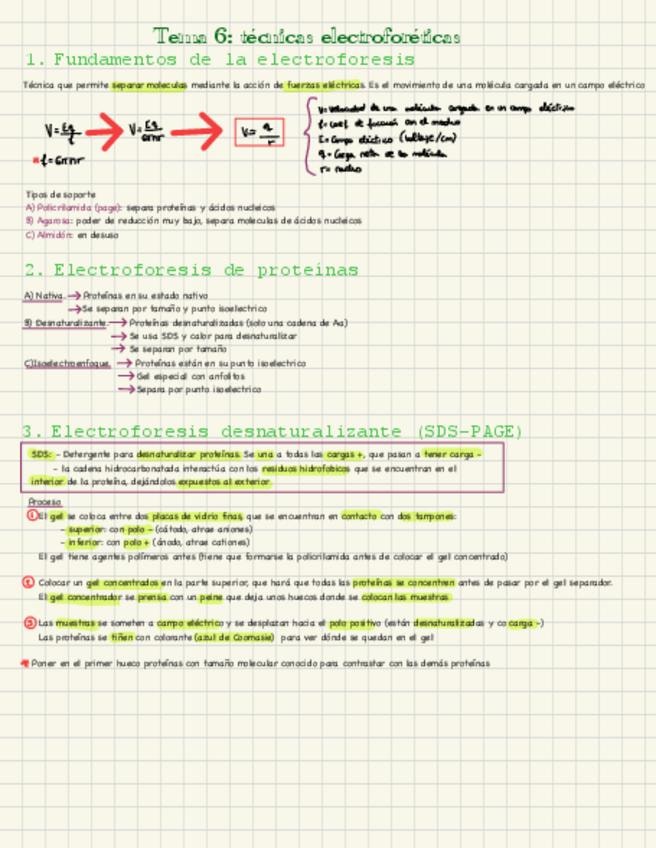 Tema 6: técnicas electroforéticas
1. Fundamentos de la electroforesis
Técnica que permite separar moleculas mediante la acción de fuerzas eléctricas. Es el movimiento de una molécula cargada en un campo eléctrico
V=Eq/f → V=Eq/6πηr → V=q/r
* f=6πηr
v=velocidad de una molécula cargada en un campo eléctrico
f=coef de fricción con el medio
E=Campo eléctrico (voltaje/cm)
q=Carga neta de la molécula
r=radio
Tipos de soporte
A) Policrilamida (page): separa proteínas y ácidos nucleicos
B) Agarosa: poder de reducción muy bajo, separa moleculas de ácidos nucleicos
C) Almidón: en desuso
2. Electroforesis de proteínas
A) Nativa → Proteínas en su estado nativo
→ Se separan por tamaño y punto isoelectrico
B) Desnaturalizante → Proteínas desnaturalizadas (solo una cadena de Aa)
→ Se usa SDS y calor para desnaturalizar
→ Se separan por tamaño
C)Isoelectroenfoque → Proteínas están en su punto isoelectrico
→ Gel especial con anfolitos
→ Separa por punto isoelectrico
3. Electroforesis desnaturalizante (SDS-PAGE)
SDS: - Detergente para desnaturalizar proteínas. Se una a todas las cargas +, que pasan a tener carga -
- la cadena hidrocarbonatada interactúa con los residuos hidrofobicos que se encuentran en el
interior de la proteína, dejándolos expuestos al exterior
Proceso
1 El gel se coloca entre dos placas de vidrio finas, que se encuentran en contacto con dos tampones:
- superior: con polo - (cátodo, atrae aniones)
- inferior: con polo + (ánodo, atrae cationes)
El gel tiene agentes polímeros antes (tiene que formarse la policrilamida antes de colocar el gel concentrado)
2 Colocar un gel concentrados en la parte superior, que hará que todas las proteínas se concentren antes de pasar por el gel separador.
El gel concentrador se prensa con un peine que deja unos huecos donde se colocan las muestras
3 Las muestras se someten a campo eléctrico y se desplazan hacia el polo positivo (están desnaturalizadas y co carga -)
Las proteínas se tiñen con colorante (azul de Coomasie) para ver dónde se quedan en el gel
* Poner en el primer hueco proteínas con tamaño molecular conocido para contrastar con las demás proteínas